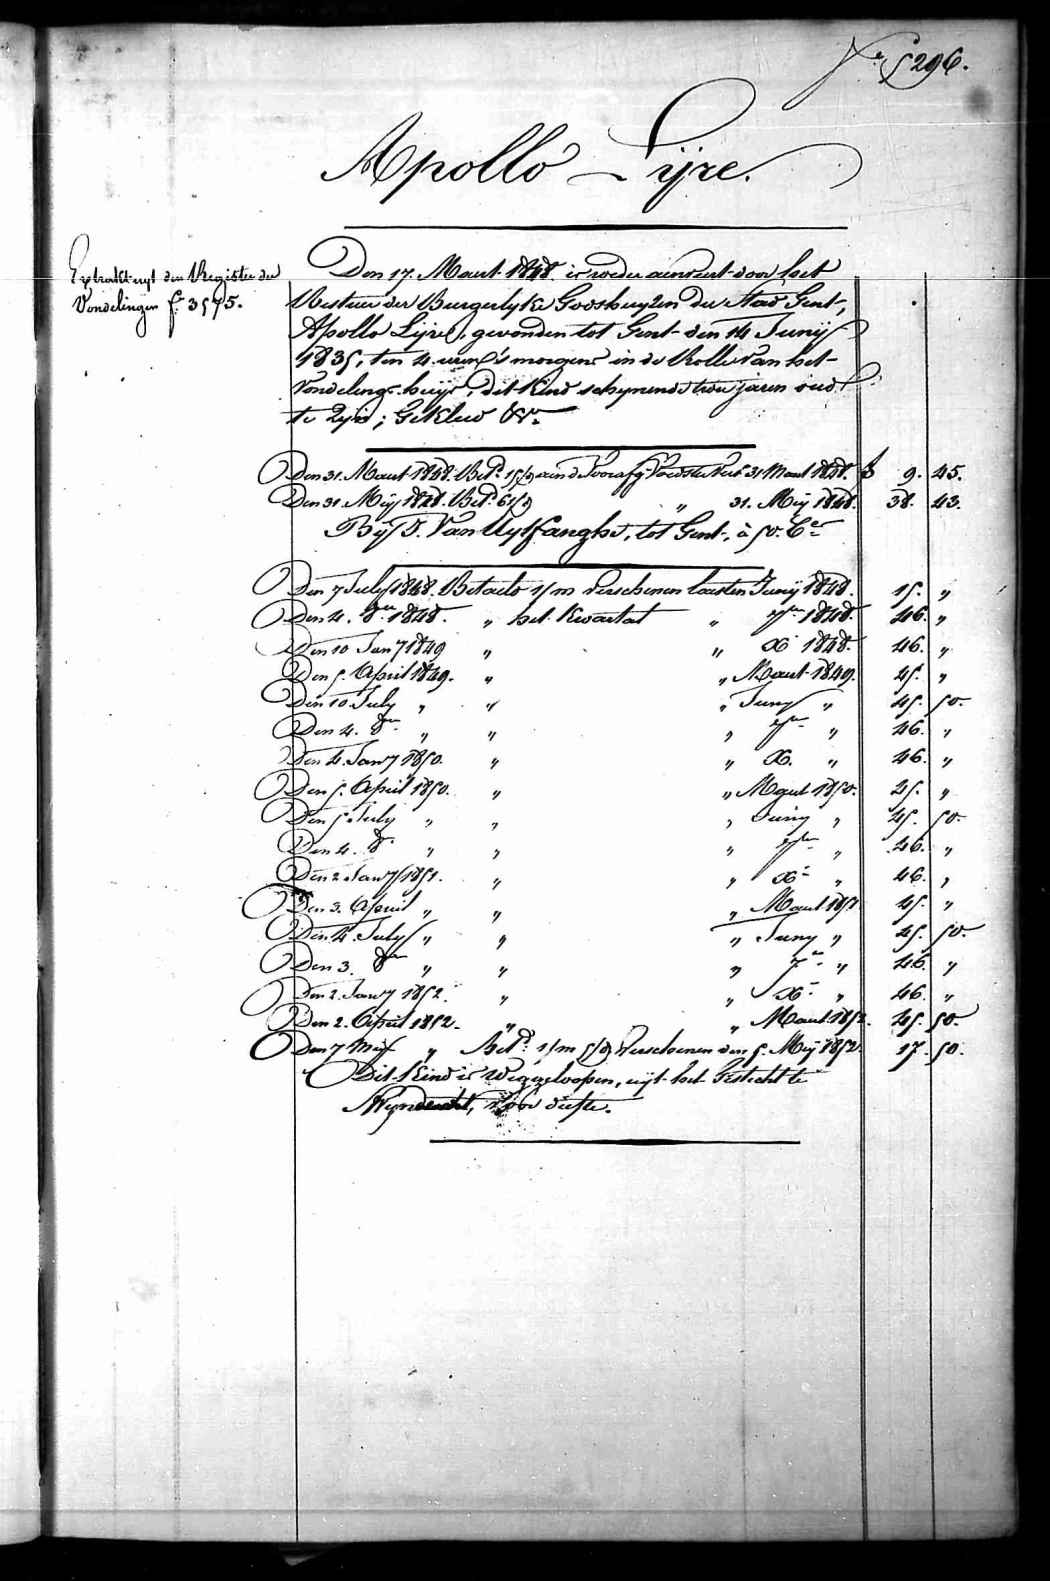 N.r 5296.
Apollo Lijre.
Extrakt uyt den Register der
Vondelingen f.o 3575.
Den 17. Maart 1848. is weder aenveert door het
Bestuer der Burgerlyke Godshuyzen der Stad Gent,
Apollo Lijre, gevonden tot Gent den 14 Junij
1835, ten 4. uren 's morgens in de Rolle van het
Vondelings-huys, dit Kind schynende twee jaren oud
te zyn; Gekleed &.a
Den 31. Maart 1848. Bet.d 15/d aan de Voorafg. Voedster Vert. 31 Maart 1848. f 9. 45.
Den 31. Mey 1848. Bet.d 61/d " 31. Mey 1848. 38. 43.
By D. Van Uytfanghe, tot Gent, à 50. C.en
Den 7 July 1848. Betaeld 1/m verschenen laesten Juny 1848. 15. "
Den 4. 8.ber 1848. " het Kwartael " 7.ber 1848. 46. "
Den 10 Jan.y 1849 " " X. 1848. 46. "
Den 5. April 1849. " " Maart 1849. 45. "
Den 10 July " " " Juny " 45. 50.
Den 4. 8.ber " " " 7.ber " 46. "
Den 4. Jan.y 1850. " " X. " 46. "
Den 5. April 1850. " " Maart 1850. 45. "
Den 5 July " " " Juny " 45. 50.
Den 4. 8. " " " 7.ber " 46. "
Den 2 Jan.y 1851. " " X.r " 46. "
Den 3. April " " " Maart 1851 45. "
Den 4. July " " " Juny " 45. 50.
Den 3. 8.ber " " " 7.r " 46. "
Den 2. Jan.y 1852. " " X.r " 46. "
Den 2. April 1852. " " Maart 1852. 45. 50.
Den 7 Mey " Bet.d 1/m 5/d Verschenen den 5. Mey 1852. 17. 50.
Dit Kind is weggeloopen, uyt het Gesticht te
voor diefte.